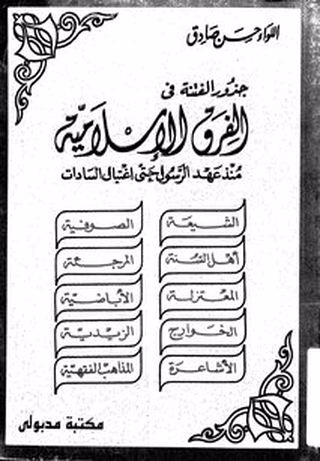 اللواء حسن صادق
جذور الفتنة فى
الفرق الإسلامية
منذ عهد الرسول حتى إغتيال السادات
الشيعة
الصوفية
أهل السنة
المرجئة
المعتزلة
الأباضية
الخوارج
الزيدية
الأشاعرة
المذاهب الفقهية
مكتبة مدبولى